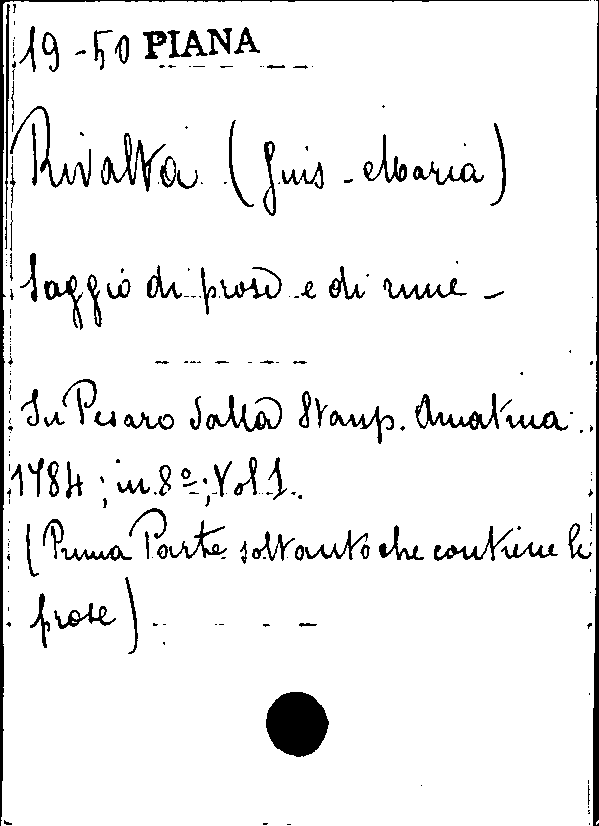 19-50 PIANA
Rivalta (Gius-Maria)
Saggio di prose e di rime -
In Pesaro dalla Stamp. Amatina.
1784; in 8º; Vol 1.
(Prima Parte soltanto che contiene le
prose)